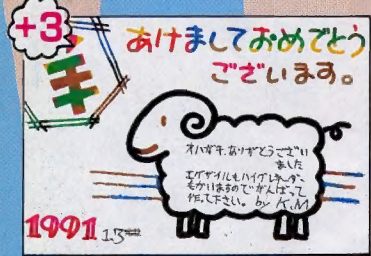 +3
あけましておめでとう
ございます。
オハガキありがとうござい
ました
エグザイルもハイグレネーダー
もかいますのでがんばって
作って下さい。by K.M
1991 1.3